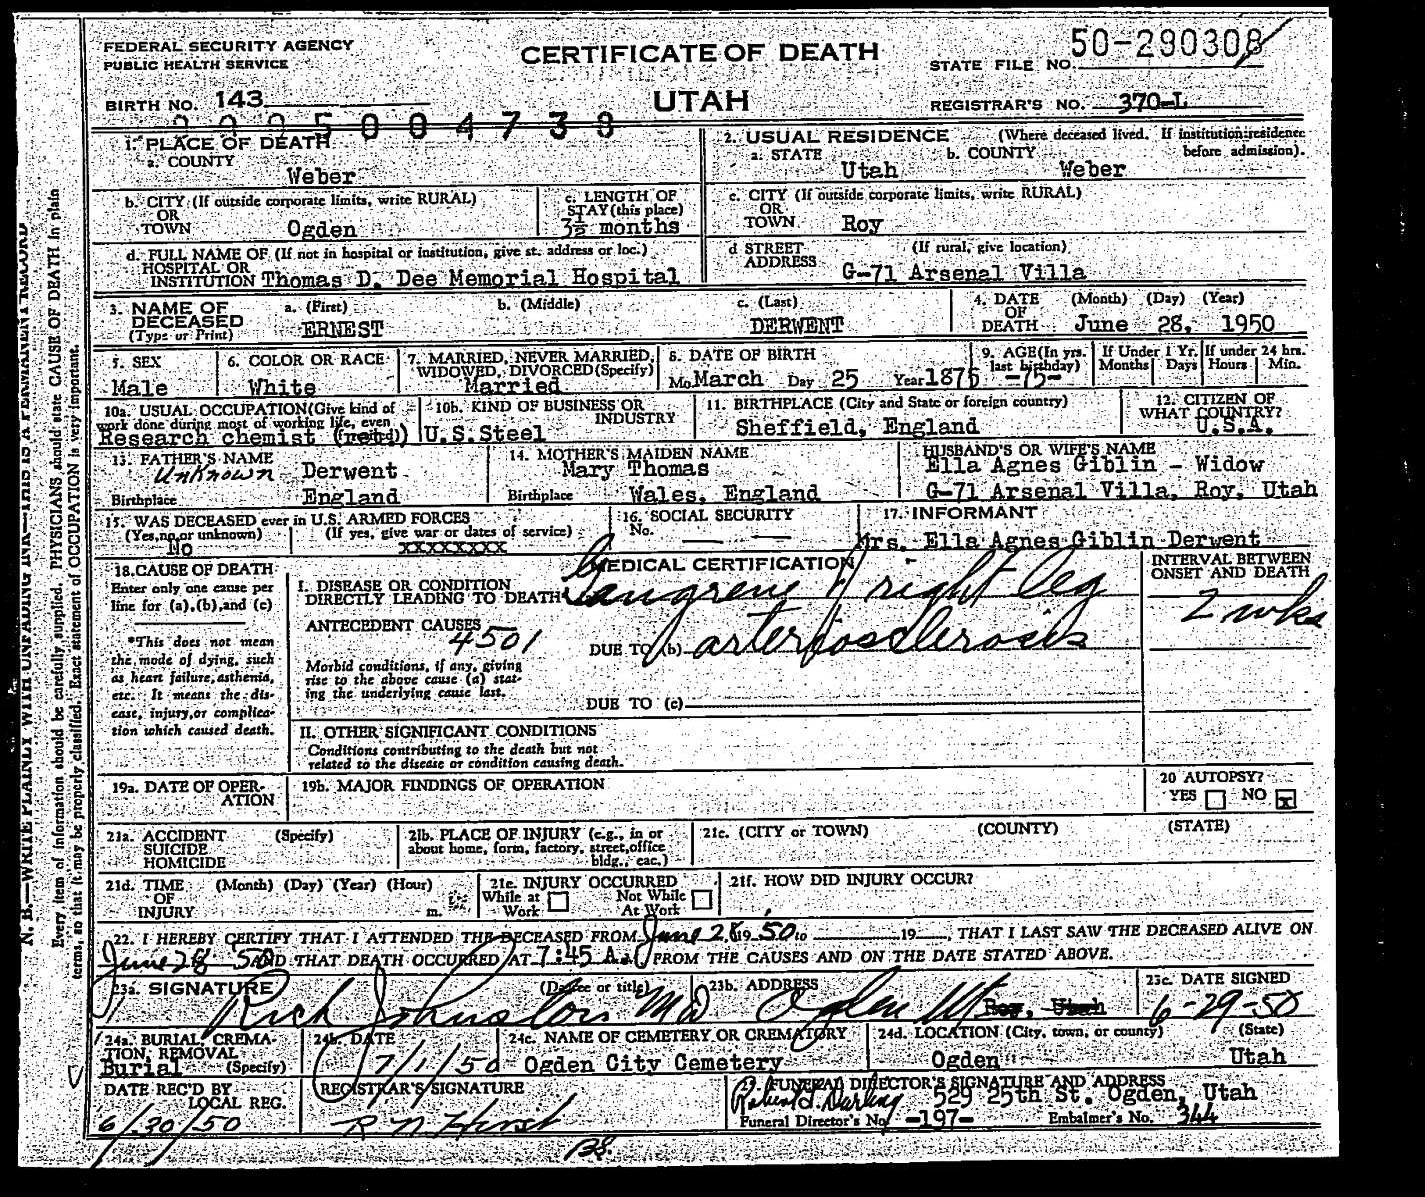 FEDERAL SECURITY AGENCY
PUBLIC HEALTH SERVICE
CERTIFICATE OF DEATH
50-290308
STATE FILE NO.
BIRTH NO. 143
UTAH
REGISTRAR'S NO. 370-L
1. PLACE OF DEATH
a. COUNTY
Weber
2. USUAL RESIDENCE (Where deceased lived. If institution: residence before admission).
a. STATE
Utah
b. COUNTY
Weber
b. CITY (If outside corporate limits, write RURAL)
OR
TOWN
Ogden
c. LENGTH OF
STAY (this place)
3½ months
c. CITY (If outside corporate limits, write RURAL)
OR
TOWN
Roy
d. FULL NAME OF (If not in hospital or institution, give st. address or loc.)
HOSPITAL OR
INSTITUTION Thomas D. Dee Memorial Hospital
d STREET (If rural, give location)
ADDRESS
G-71 Arsenal Villa
3. NAME OF
DECEASED
(Type or Print)
a. (First)
ERNEST
b. (Middle)
c. (Last)
DERWENT
4. DATE (Month) (Day) (Year)
OF
DEATH June 28, 1950
5. SEX
Male
6. COLOR OR RACE
White
7. MARRIED, NEVER MARRIED,
WIDOWED, DIVORCED (Specify)
Married
8. DATE OF BIRTH
Mo. March Day 25 Year 1875
9. AGE (In yrs.
last birthday)
-75-
If Under 1 Yr.
Months Days
If under 24 hrs.
Hours Min.
10a. USUAL OCCUPATION (Give kind of
work done during most of working life, even
Research chemist (retd)
10b. KIND OF BUSINESS OR
INDUSTRY
U.S.Steel
11. BIRTHPLACE (City and State or foreign country)
Sheffield, England
12. CITIZEN OF
WHAT COUNTRY?
U.S.A.
13. FATHER'S NAME
Unknown Derwent
Birthplace England
14. MOTHER'S MAIDEN NAME
Mary Thomas
Birthplace Wales, England
HUSBAND'S OR WIFE'S NAME
Ella Agnes Giblin - Widow
G-71 Arsenal Villa, Roy, Utah
15. WAS DECEASED ever in U.S. ARMED FORCES
(Yes, no, or unknown) (If yes, give war or dates of service)
No xxxxxxxx
16. SOCIAL SECURITY
No.
17. INFORMANT
Mrs. Ella Agnes Giblin Derwent
18. CAUSE OF DEATH
Enter only one cause per
line for (a), (b), and (c)
*This does not mean
the mode of dying, such
as heart failure, asthenia,
etc. It means the dis-
ease, injury, or complica-
tion which caused death.
MEDICAL CERTIFICATION
I. DISEASE OR CONDITION
DIRECTLY LEADING TO DEATH Gangrene of right leg
ANTECEDENT CAUSES
4501
DUE TO (b) arteriosclerosis
Morbid conditions, if any, giving
rise to the above cause (a) stat-
ing the underlying cause last.
DUE TO (c)
INTERVAL BETWEEN
ONSET AND DEATH
2 wks
II. OTHER SIGNIFICANT CONDITIONS
Conditions contributing to the death but not
related to the disease or condition causing death.
19a. DATE OF OPER-
ATION
19b. MAJOR FINDINGS OF OPERATION
20 AUTOPSY?
YES NO x
21a. ACCIDENT (Specify)
SUICIDE
HOMICIDE
21b. PLACE OF INJURY (e.g., in or
about home, form, factory, street, office
bldg., eac.)
21c. (CITY or TOWN) (COUNTY) (STATE)
21d. TIME (Month) (Day) (Year) (Hour)
OF
INJURY m.
21e. INJURY OCCURRED
While at Not While
Work At Work
21f. HOW DID INJURY OCCUR?
22. I HEREBY CERTIFY THAT I ATTENDED THE DECEASED FROM June 28, 19 50 to 19 , THAT I LAST SAW THE DECEASED ALIVE ON
June 28 50 AND THAT DEATH OCCURRED AT 7:45 A.M FROM THE CAUSES AND ON THE DATE STATED ABOVE.
23a. SIGNATURE (Degree or title)
Rich Johnston MD
23b. ADDRESS
Ogden Ut Roy, Utah
23c. DATE SIGNED
6-29-50
24a. BURIAL, CREMA-
TION, REMOVAL
Burial (Specify)
24b. DATE
7/1/50
24c. NAME OF CEMETERY OR CREMATORY
Ogden City Cemetery
24d. LOCATION (City, town, or county) (State)
Ogden Utah
DATE REC'D BY
LOCAL REG.
6/30/50
REGISTRAR'S SIGNATURE
R N Hirst
FUNERAL DIRECTOR'S SIGNATURE AND ADDRESS
529 25th St. Ogden, Utah
Funeral Director's No. -197- Embalmer's No. 344
N. B.—WRITE PLAINLY WITH UNFADING INK—THIS IS A PERMANENT RECORD
Every item of information should be carefully supplied. PHYSICIANS should state CAUSE OF DEATH in plain
terms, so that it may be properly classified. Exact statement of OCCUPATION is very important.